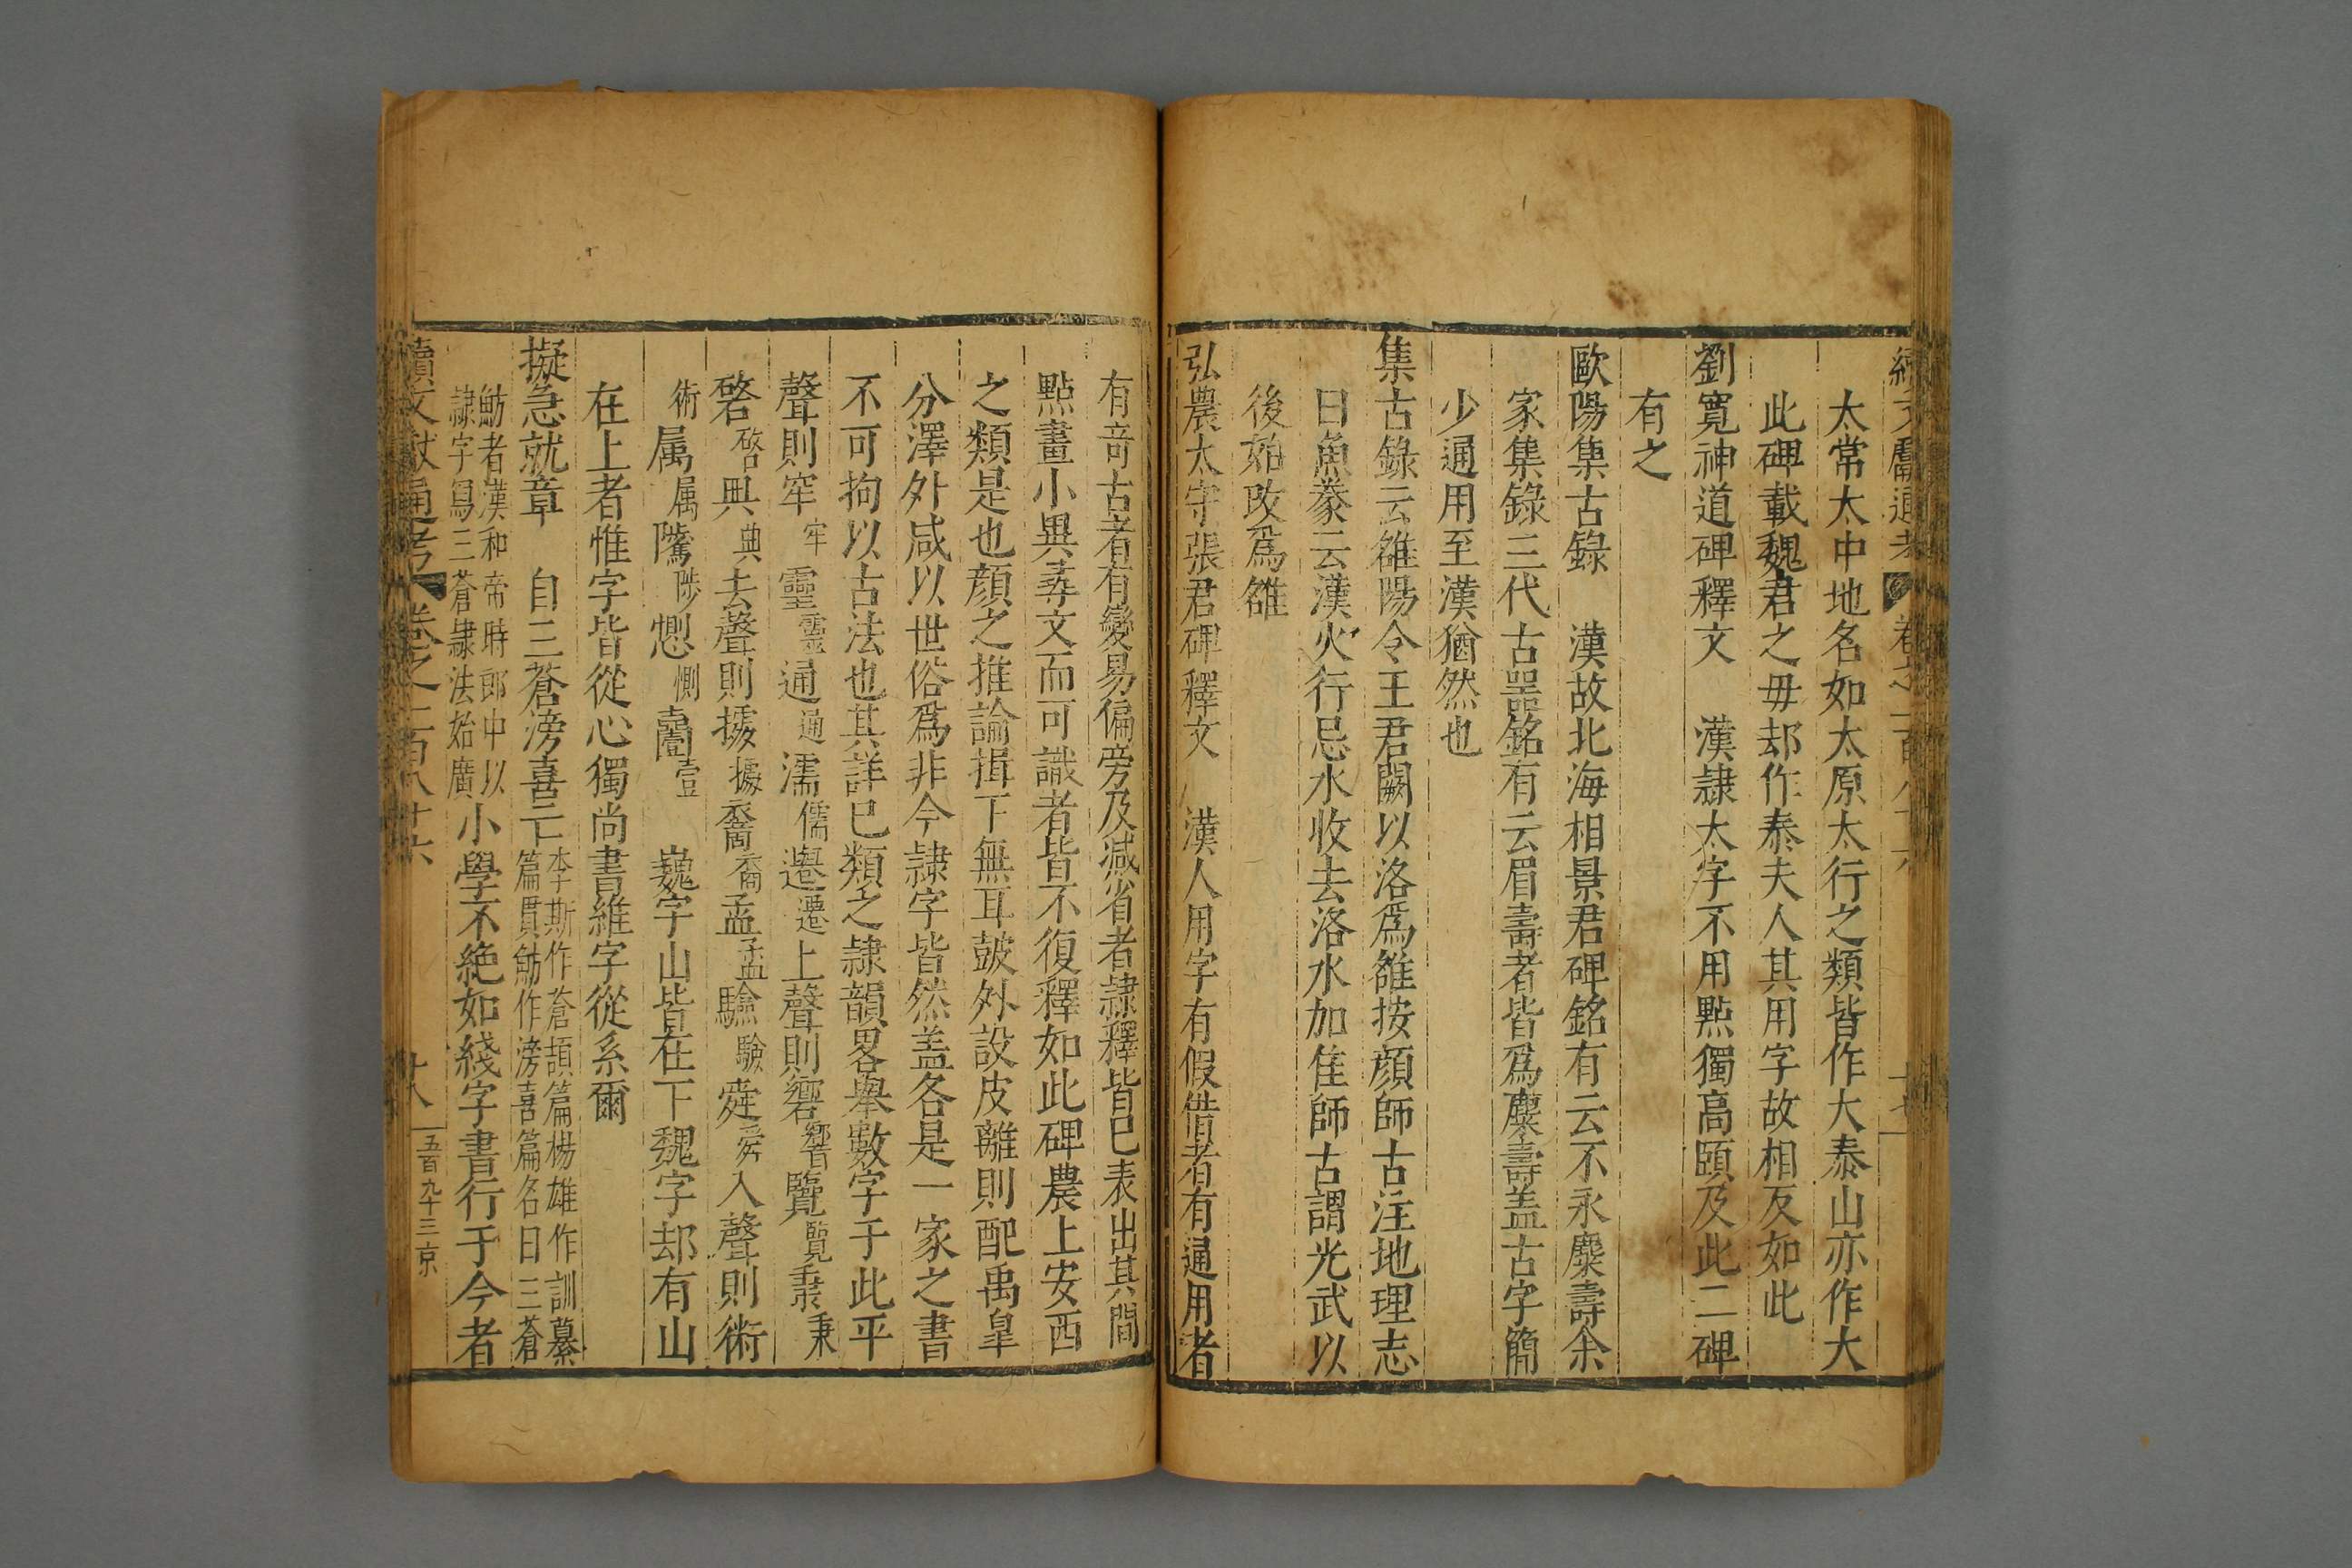 續文獻通考 卷之一百八十六 十七
太常太中地名如太原太行之類皆作大泰山亦作大
此碑載魏君之毋却作泰夫人其用字故相反如此
劉寬神道碑釋文 漢隷太字不用點獨高頤及此二碑
有之
歐陽集古錄 漢故北海相景君碑銘有云不永麋壽余
家集錄三代古噐銘有云眉壽者皆爲麋壽盖古字簡
少通用至漢猶然也
集古錄云雒陽令王君闕以洛爲雒按顔師古注地理志
曰魚豢云漢火行忌水收去洛水加隹師古謂光武以
後始攺爲雒
弘農太守張君碑釋文 漢人用字有假借者有通用者
有竒古者有變易偏旁及减省者隷釋皆巳表出其間
點畫小異尋文而可識者皆不復釋如此碑農上安西
之類是也顔之推論揖下無耳鼓外設皮離則配禹皐
分澤外咸以世俗爲非今隷字皆然盖各是一家之書
不可拘以古法也其詳巳類之隷韻畧舉數字于此平
聲則窂牢靈霊通通濡儒遷遷上聲則響響覽覧秉秉
啓啓典典去聲則據據裔裔孟孟驗驗舜舜入聲則術
術属属隲陟惻惻壹壹 巍字山皆在下魏字却有山
在上者惟字皆從心獨尚書維字從系爾
擬急就章 自三蒼滂喜云亡李斯作蒼頡篇楊雄作訓纂
篇賈魴作滂喜篇名曰三蒼
魴者漢和帝時郎中以
隷字寫三蒼隷法始廣小學不絶如綫字書行于今者
續文獻通考 卷之一百八十六 十八 五百九十三京